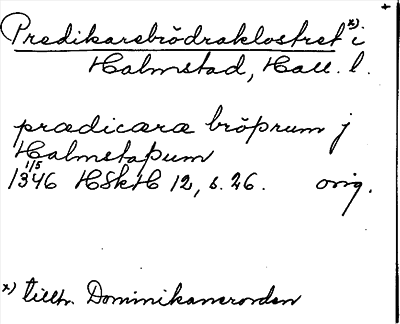 Predikarebrödraklostret *) i
Halmstad, Hall. l.
prædicara bröþrum j
Halmstaþum
1/5
1346 HSkH 12, s. 26. orig.
*) tillh. Dominikanerorden